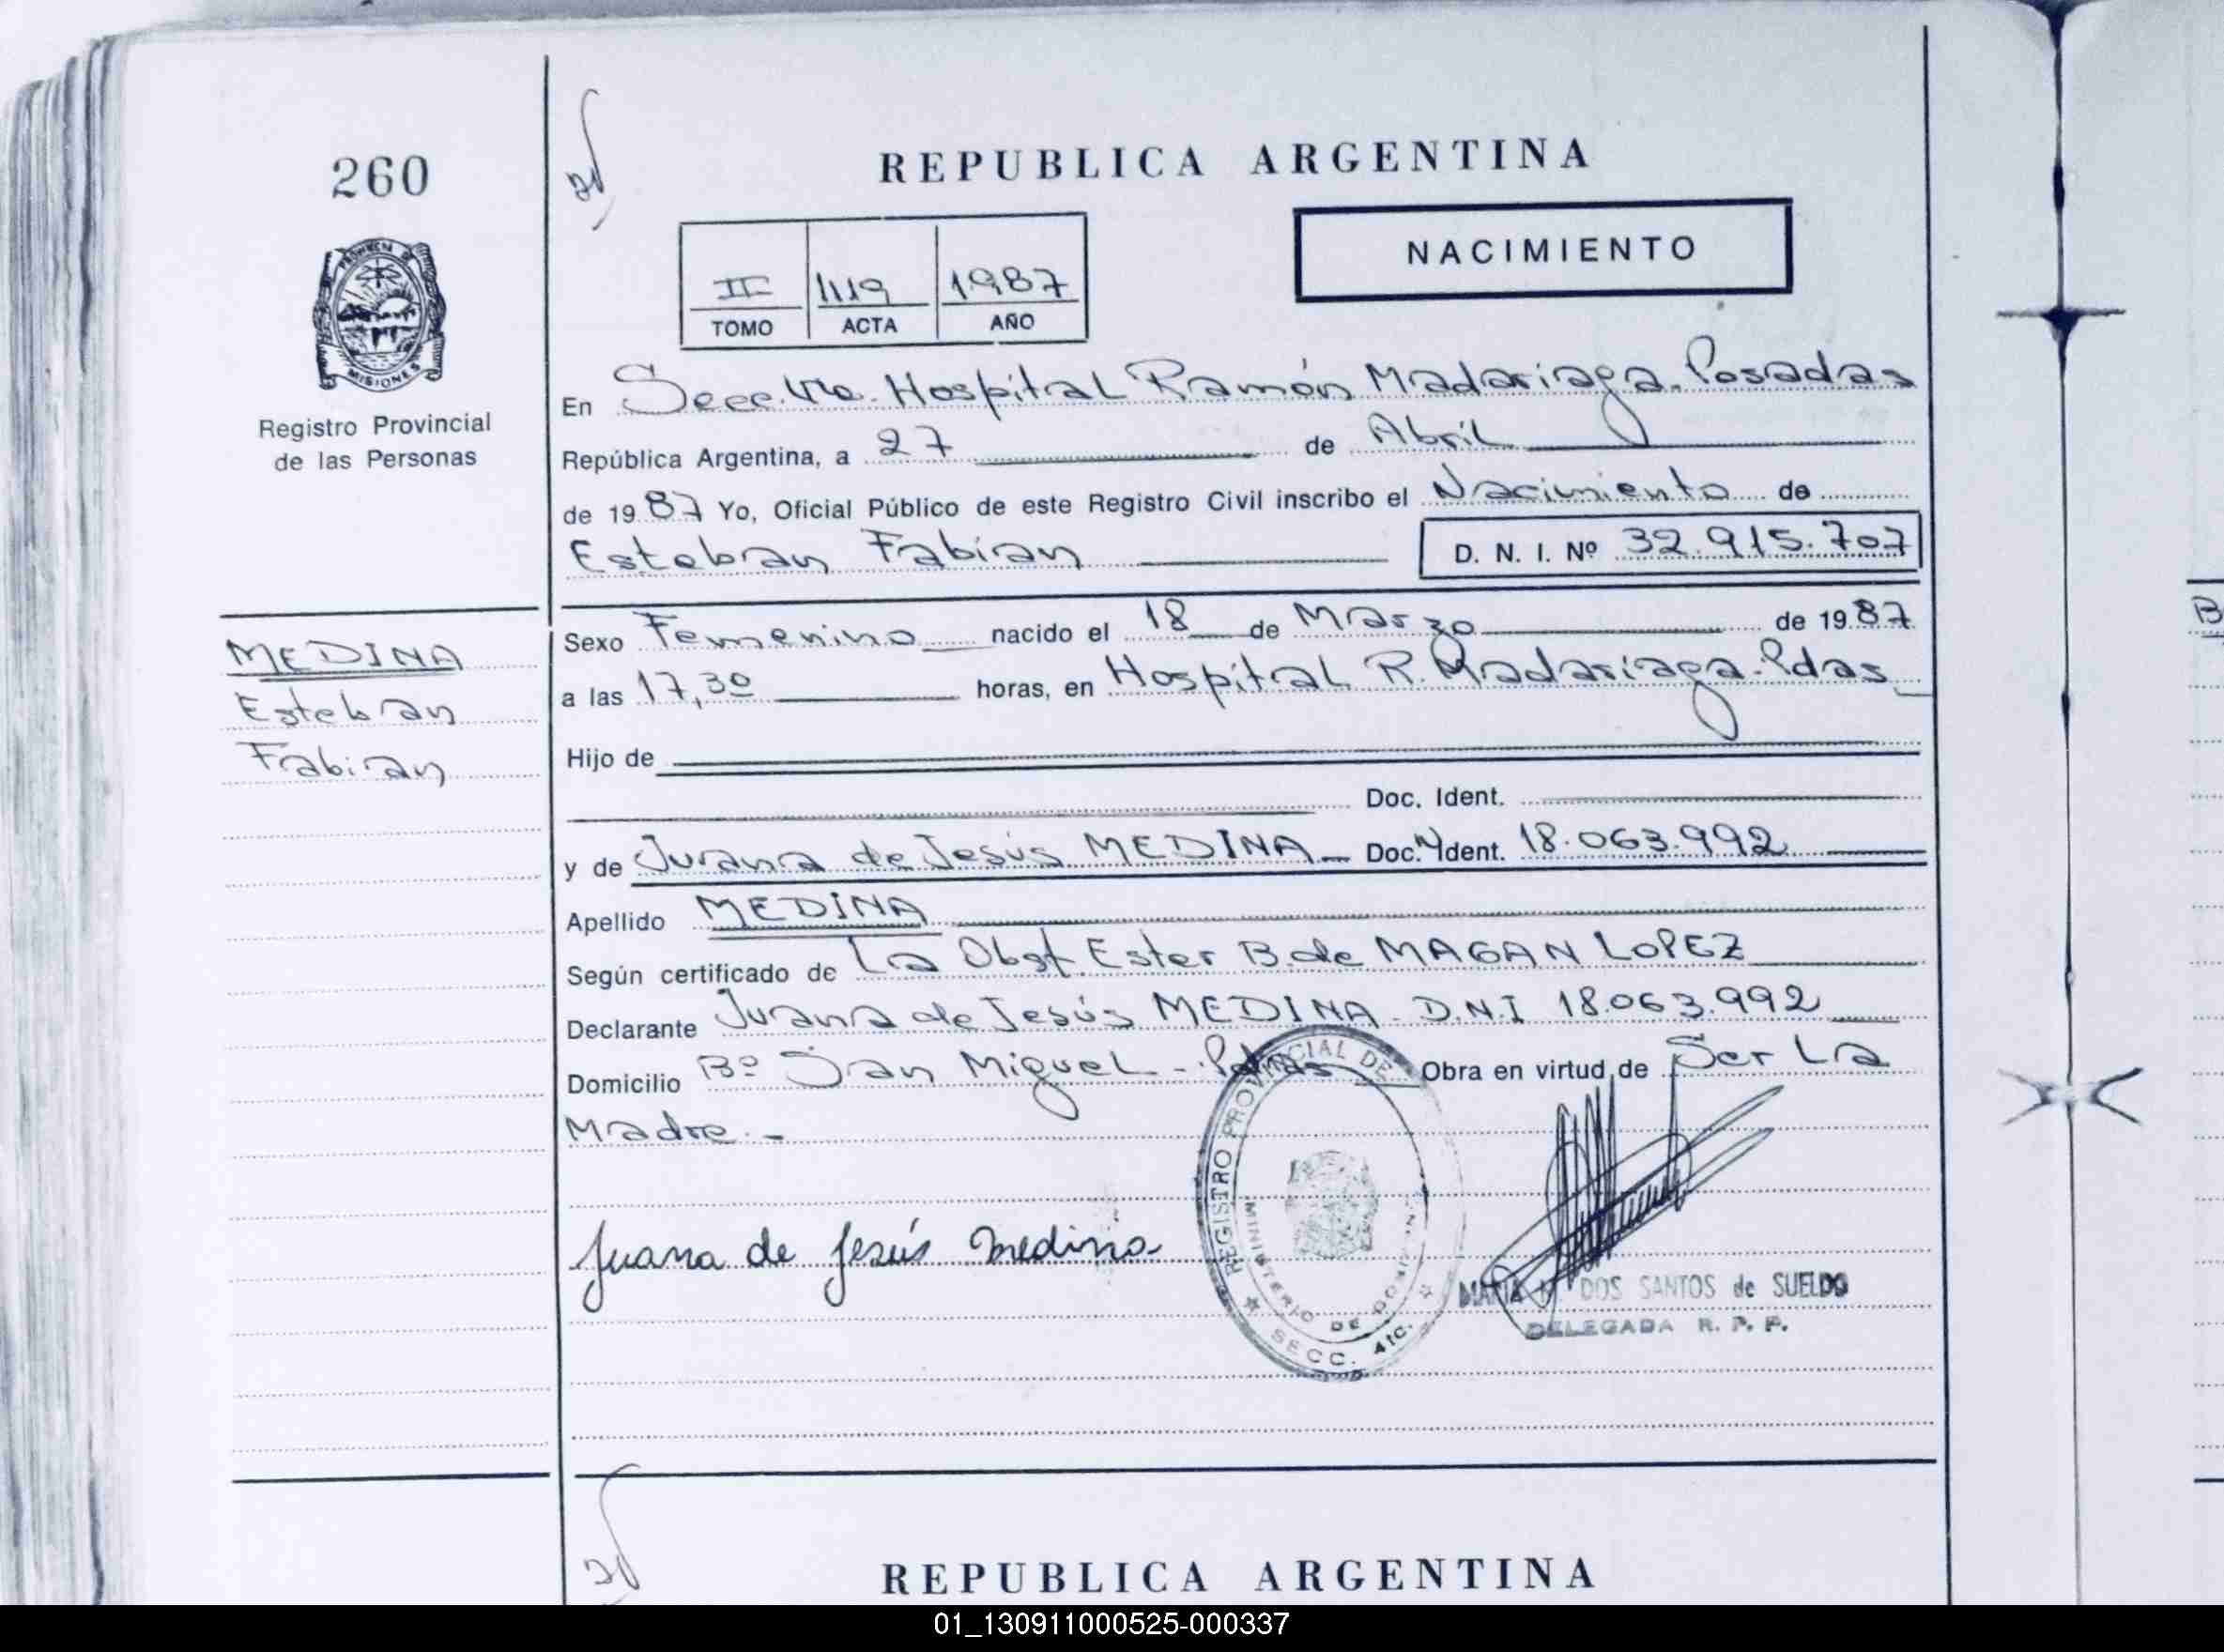 260
PROVINCIA DE
MISIONES
Registro Provincial
de las Personas
MEDINA
Esteban
Fabian
REPUBLICA ARGENTINA
II 1119 1987
TOMO ACTA AÑO
NACIMIENTO
En Secc. 4ta. Hospital Ramón Madariaga. Posadas
República Argentina, a 27 de Abril
de 1987 Yo, Oficial Público de este Registro Civil inscribo el Nacimiento de
Esteban Fabian D. N. I. Nº 32.915.707
Sexo Femenino nacido el 18 de Marzo de 1987
a las 17,30 horas, en Hospital R. Madariaga. Pdas
Hijo de
Doc. Ident.
y de Juana de Jesús MEDINA Doc. Ident. 18.063.992
Apellido MEDINA
Según certificado de La Obst. Ester B. de MAGAN LOPEZ
Declarante Juana de Jesús MEDINA. D.N.I 18.063.992
Domicilio Bº San Miguel - Pdas Obra en virtud de Ser La
Madre.-
REGISTRO PROVINCIAL DE
MINISTERIO DE GOBIERNO
SECC. 4ta.
Juana de Jesús Medina
DOS SANTOS de SUELDO
DELEGADA R. P. P.
REPUBLICA ARGENTINA
01_130911000525-000337